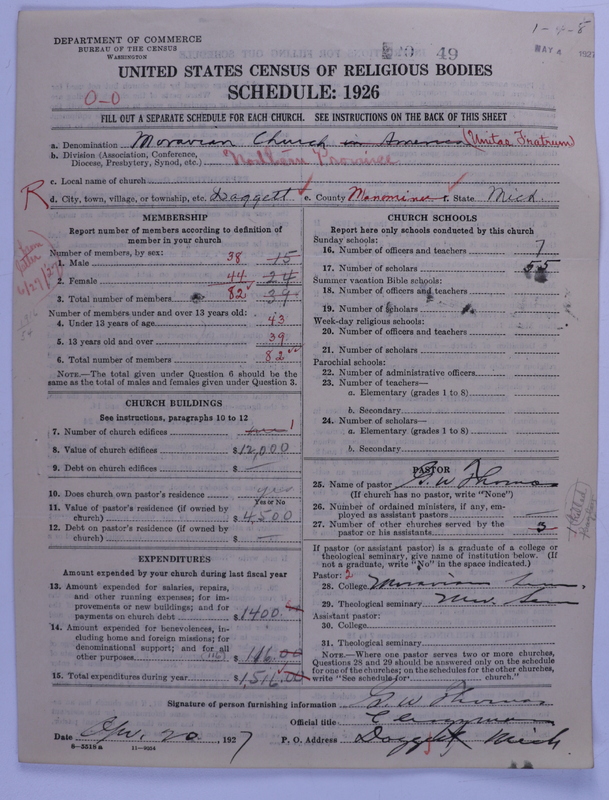 1-4-8
DEPARTMENT OF COMMERCE
BUREAU OF THE CENSUS
WASHINGTON
49
MAY 4 1927
UNITED STATES CENSUS OF RELIGIOUS BODIES
SCHEDULE: 1926
0-0
FILL OUT A SEPARATE SCHEDULE FOR EACH CHURCH. SEE INSTRUCTIONS ON THE BACK OF THIS SHEET
a. Denomination Moravian Church in America (Unitas Fratrum)
b. Division (Association, Conference,
Diocese, Presbytery, Synod, etc.) Northern Province
c. Local name of church
R d. City, town, village, or township, etc. Daggett e. County Menominee f. State Mich.
MEMBERSHIP
Report number of members according to definition of
member in your church
Number of members, by sex:
1. Male 38 15
2. Female 44 24
3. Total number of members 82 39
Number of members under and over 13 years old:
4. Under 13 years of age 43
5. 13 years old and over 39
6. Total number of members 82
NOTE.—The total given under Question 6 should be the
same as the total of males and females given under Question 3.
6/27/27
CHURCH BUILDINGS
See instructions, paragraphs 10 to 12
7. Number of church edifices 1
8. Value of church edifices $12,000
9. Debt on church edifices $ —
10. Does church own pastor's residence yes
Yes or No
11. Value of pastor's residence (if owned by
church) $4,500
12. Debt on pastor's residence (if owned by
church) $ —
EXPENDITURES
Amount expended by your church during last fiscal year
13. Amount expended for salaries, repairs,
and other running expenses; for im-
provements or new buildings; and for
payments on church debt $1400.
14. Amount expended for benevolences, in-
cluding home and foreign missions; for
denominational support; and for all
other purposes (116) $116.00
15. Total expenditures during year $1,516.00
CHURCH SCHOOLS
Report here only schools conducted by this church
Sunday schools:
16. Number of officers and teachers 7
17. Number of scholars 55
Summer vacation Bible schools:
18. Number of officers and teachers
19. Number of scholars
Week-day religious schools:
20. Number of officers and teachers
21. Number of scholars
Parochial schools:
22. Number of administrative officers
23. Number of teachers—
a. Elementary (grades 1 to 8)
b. Secondary
24. Number of scholars—
a. Elementary (grades 1 to 8)
b. Secondary
PASTOR
25. Name of pastor G. W. Thomas
(If church has no pastor, write "None")
26. Number of ordained ministers, if any, em-
ployed as assistant pastors —
27. Number of other churches served by the
pastor or his assistants 3
If pastor (or assistant pastor) is a graduate of a college or
theological seminary, give name of institution below. (If
not a graduate, write "No" in the space indicated.)
Pastor: 2
28. College Moravian Sem.
29. Theological seminary Mor. Sem
Assistant pastor:
30. College
31. Theological seminary
NOTE.—Where one pastor serves two or more churches,
Questions 28 and 29 should be answered only on the schedule
for one of the churches; on the schedules for the other churches,
write "See schedule for church."
Signature of person furnishing information G. W. Thomas
Official title Clergyman
Date Apr. 20, 1927 P. O. Address Daggett Mich
8-5319 a 11-9024